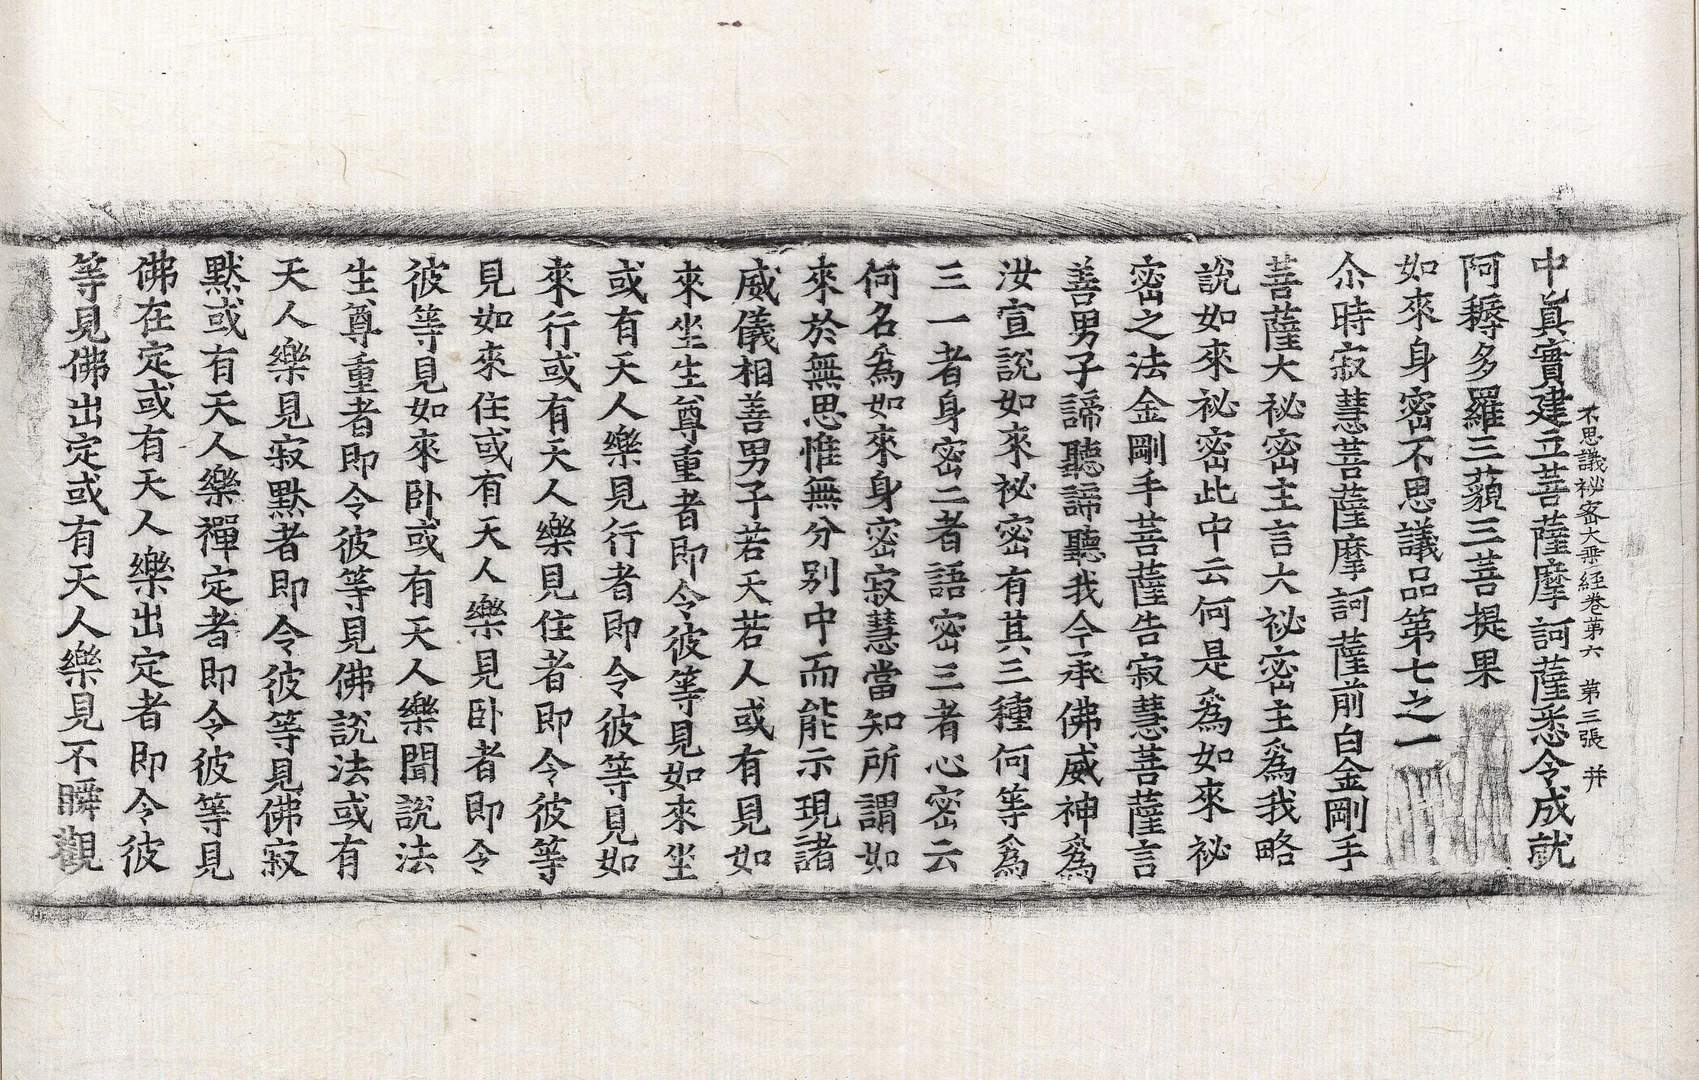 不思議祕密大乗経卷第六　第三張　并
中眞實建立菩薩摩訶薩悉令成就
阿耨多羅三藐三菩提果
如來身密不思議品第七之一
尒時寂慧菩薩摩訶薩前白金剛手
菩薩大祕密主言大祕密主爲我略
說如來祕密此中云何是爲如來祕
密之法金剛手菩薩告寂慧菩薩言
善男子諦聽諦聽我今承佛威神爲
汝宣說如來祕密有其三種何等爲
三一者身密二者語密三者心密云
何名爲如來身密寂慧當知所謂如
來於無思惟無分別中而能示現諸
威儀相善男子若天若人或有見如
來坐生尊重者即令彼等見如來坐
或有天人樂見行者即令彼等見如
來行或有天人樂見住者即令彼等
見如來住或有天人樂見卧者即令
彼等見如來卧或有天人樂聞說法
生尊重者即令彼等見佛說法或有
天人樂見寂默者即令彼等見佛寂
默或有天人樂禪定者即令彼等見
佛在定或有天人樂出定者即令彼
等見佛出定或有天人樂見不瞬觀